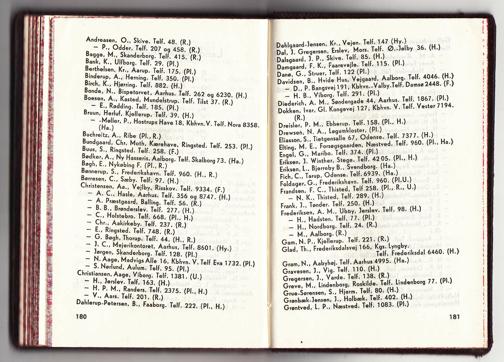 Andreasen, O., Skive. Telf. 48. (R.)
— P., Odder. Telf. 207 og 458. (R.)
Bagge, M., Skanderborg. Telf. 85. (R.)
Bank, K., Ulfborg. Telf. 29. (Pl.)
Berthelsen, Kr., Aarup. Telf. 175. (Pl.)
Binderup, A., Herning. Telf. 350. (Pl.)
Birch, K., Hjørring. Telf. 882. (H.)
Bonde, N., Bispetorvet, Aarhus. Telf. 262 og 6230. (H.)
Boesen, A., Kasted, Mundelstrup. Telf. Tilst 37. (R.)
— E., Rødding. Telf. 185. (Pl.)
Bruun, Herluf, Kjellerup. Telf. 39. (H.)
— -Møller, P., Hostrups Have 18, Kbhvn. V. Telf. Nora 8358. (Ha.)
Buchreitz, A., Ribe (Pl., R.)
Bundgaard, Chr. Moth, Kærehave, Ringsted. Telf. 253. (Pl.)
Buus, S., Ringsted. Telf. 258. (F.)
Bødker, A., Ny Hasseris, Aalborg. Telf. Skalborg 73. (Ha.)
Bøgh, E., Nykøbing F. (Pl., R.)
Bønnerup, S., Frederikshavn. Telf. 960. (H., R.)
Børresen, C., Sæby. Telf. 97. (H.)
Christensen, Aa., Vejlby, Risskov. Telf. 9334. (F.)
— A. C., Hasle, Aarhus. Telf. 356 og 8747. (H.)
— A. Præstgaard, Balling. Telf. 56. (R.)
— B. B., Brønderslev. Telf. 277. (H.)
— C., Holstebro. Telf. 668. (Pl., H.)
— Chr., Aakirkeby. Telf. 237. (R.)
— E., Ringsted. Telf. 748. (R.)
— G. Bagh, Thorup. Telf. 44. (H., R.)
— J. C., Mejerikontoret, Aarhus. Telf. 8601. (Hy.)
— Jørgen, Skanderborg. Telf. 128. (Pl.)
— N. Aage, Madvigs Alle 16, Kbhvn. V. Telf Eva 1732. (Pl.)
— S. Nørlund, Aulum. Telf. 95. (Pl.)
Christiansen, Aage, Viborg. Telf. 1381. (U.)
— H., Jerslev. Telf. 163. (H.)
— H. P. M., Randers. Telf. 2375. (Pl., H.)
— V., Aars. Telf. 201. (R.)
Dahlerup-Petersen, B., Faaborg. Telf. 222. (Pl., H.)
180
Dahlgaard-Jensen, Kr., Vejen. Telf. 147 (Hy.)
Dal, J. Gregersen, Erslev, Mors. Telf. Ø.-Jølby 36. (H.)
Dalsgaard, J. P., Skive. Telf. 415. (H.)
Damgaard, F. K., Faarevejle. Telf. 115. (Pl.)
Dane, G., Struer. Telf. 122 (Pl.)
Davidsen, B., Hvide Hus, Vejgaard, Aalborg. Telf. 4046. (H.)
— D., P. Bangsvej 191, Kbhvn.-Valby. Telf. Damsø 2448. (F.)
— H. B., Viborg. Telf. 291. (Pl.)
Diederich, A. M., Søndergade 44, Aarhus. Telf. 1867. (Pl.)
Dokken, Ivar, Gl. Kongevej 127, Kbhvn. V. Telf. Vester 7194. (R.)
Dreisler, P. M., Ebberup. Telf. 158. (Pl., H.)
Drewsen, N. A., Løgumkloster. (Pl.)
Eliasson, S., Tietgensalle 67, Odense. Telf. 7377. (H.)
Elting, M. E., Forsøgsgaarden, Næstved. Telf. 960. (Pl., Ha.)
Engel, G., Maribo. Telf. 374. (Pl.)
Eriksen, J. Winther, Stege. Telf. 4205. (Pl., H.)
Eriksen, L., Bjerreby B., Svendborg. (Ha.)
Fich, C., Tarup, Odense. Telf. 6939. (Ha.)
Foldager, G., Frederikshavn. Telf. 960. (Pl.U.)
Frandsen, F. C., Thisted. Telf 258. (Pl., R., U.)
— N. K., Thisted. Telf. 289. (H.)
Frank, J., Tønder. Telf. 250. (H.)
Frederiksen, A. M., Ubby, Jerslev. Telf. 98. (H.)
— H., Hadsten. Telf. 77. (Pl.)
— H., Nordborg. Telf. 24. (R.)
— M., Aalborg. (R.)
Gam, N. P., Kjellerup. Telf. 221. (R.)
Glad, Th., Frederiksdalsvej 166, Kgs. Lyngby. Telf. Frederiksdal 6460. (H.)
Gram, N., Aabyhøj. Telf. Aarhus 4995. (Ha.)
Gravesen, J., Vig. Telf. 110. (H.)
Gregersen, J., Varde. Telf. 138. (R.)
Greve, M., Lindenborg, Roskilde. Telf. Lindenborg 77. (Pl.)
Grue-Sørensen, S., Hjerm. Telf. 80. (H.)
Grønbæk-Jensen, J., Holbæk. Telf. 402. (H.)
Grøntved, L. P., Næstved. Telf. 1083. (Pl.)
181